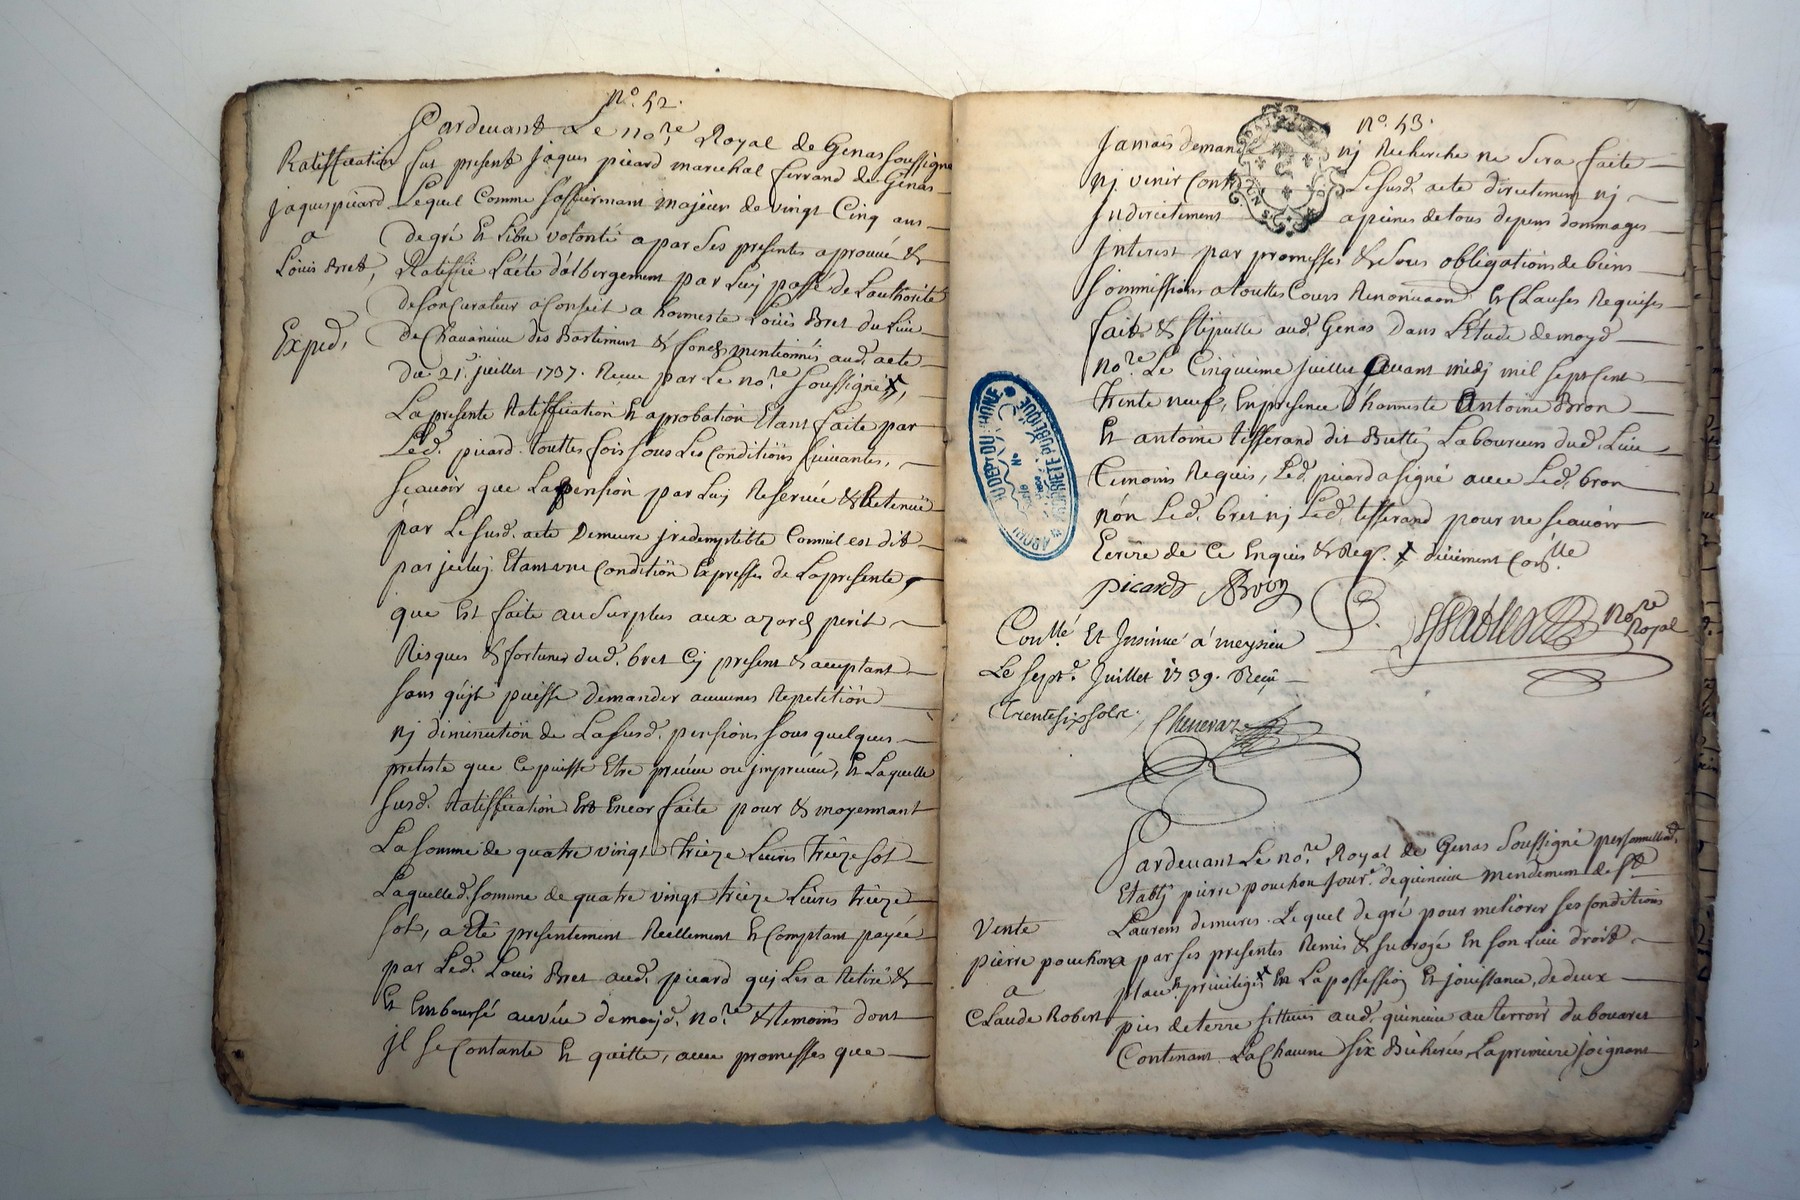 n.° 52.
Pardeuant Le no.re Royal de Genas soussigné
Ratiffication
jaques picard
a
Loüis Bret,
Exped,
fut present jaques picard marechal ferrand de Genas
Lequel Comme s'affirmant majeur de vingt Cinq ans
de gré Et Libre volonté a par ses presentes aprouué &
Ratiffié L'acte d'albergement par Luy passé de L'authorité
de son Curateur a Conseit a honneste Loüis Bret du Lieu
de Chauanieu des Bastiment & fonds mentionnés aud. acte
du 21.e juillet 1737. Receu par Le no.re soussigné x,
La presente Ratiffication Et aprobation Etant faite par
Led. picard touttes fois sous Les Conditions suiuantes,
scauoir que La pension par Luy Reseruée & Retenüe
par Le susd. acte Demeure jrredemptible Comme il est dit
par jceluy Etant une Condition Expresse de La presente,
que Est faite au surplus aux azard perit
Risques & fortunes dud. bret Cy present & acceptant
sans qu'jl puisse demander aucunes Repetition
nj diminution de La susd. pensions sous quelques
preteste que Ce puisse Etre preueu ou jmpreueu, Et Laquelle
susd. Ratiffication Est Encor faite pour & moyennant
La somme de quatre vingt treize Liures treize sol
Laquelle d. somme de quatre vingt treize Liures treize
sol, a Eté presentement Reellement Et Comptant payée
par Led. Louis Bret aud. picard quj Les a Retiré &
Et Emboursé au vëu de moyd. no.re & temoins dont
jl se Contante Et quitte, auec promesses que
n.° 53.
Jamais demande nj Recherche ne sera faite
nj venir Contre Le susd. acte directement nj
Jndirectement a peines de tous depens dommages
Interest par promesses & sous obligations de biens
sommissions a touttes Cours Renonciaons Et Clauses Requises
fait & stipullé aud. Genas dans L'Etude de moyd
no.re Le Cinquieme juillet auant midj mil sept Cent
Trente neuf, En presence d'honneste Antoine Bron
Et antoine tisserand dit Buttj Laboureurs dud. Lieu
Temoins Requis, Led. picard a signé auec Led. bron
nón Led. bret nj Led. tisserand pour ne scauoir
Ecrire de Ce Enquis & Req.s x düement Con.lle
picard ABron
no.re Royal
Con.llé Et Jnsinué á meysieu
Le sept.e Juillet 1739. Reçu
Trente six sols. Chenevaz
Pardeuant Le no.re Royal de Genas soussigné personnellem.t
Vente
pierre pouchon
a
Claude Robert
Etably pierre pouchon Jour.r de quincieu mendement de s.t
Laurens demures. Lequel de gré pour meliorer ses Conditions
a par ses presentes Remis & subrogé En son Lieu droit
place Et priuilige x En La possession Et jouissance, de deux
pies de terre sittuées aud. quincieu au terroir du bouaret
Contenant La Chacune six Bicherées, La premiere joignant
ARCHIVES DU DEPT DU RHÔNE
PROPRIETE PUBLIQUE